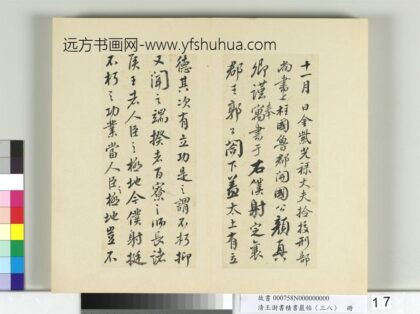 远方书画网-www.yfshuhua.com
十一月 日金紫光祿大夫撿挍刑部
尚書上柱國魯郡開國公顏真
卿謹奉寓書于右僕射定襄
郡王郭公閤下蓋太上有立
德其次有立功是之謂不朽抑
又聞之端揆者百寮之師長諸
侯王者人臣之極地今僕射挺
不朽之功業當人臣之極地豈不
故書 000758N000000000
清王澍書積書巖帖(三八) 冊
17